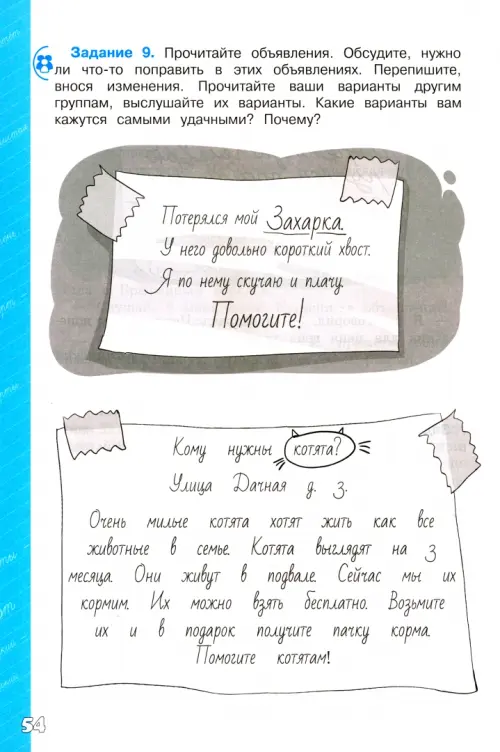 Задание 9. Прочитайте объявления. Обсудите, нужно
ли что-то поправить в этих объявлениях. Перепишите,
внося изменения. Прочитайте ваши варианты другим
группам, выслушайте их варианты. Какие варианты вам
кажутся самыми удачными? Почему?
Потерялся мой Захарка.
У него довольно короткий хвост.
Я по нему скучаю и плачу.
Помогите!
Кому нужны котята?
Улица Дачная д. 3.
Очень милые котята хотят жить как все
животные в семье. Котята выглядят на 3
месяца. Они живут в подвале. Сейчас мы их
кормим. Их можно взять бесплатно. Возьмите
их и в подарок получите пачку корма.
Помогите котятам!
54